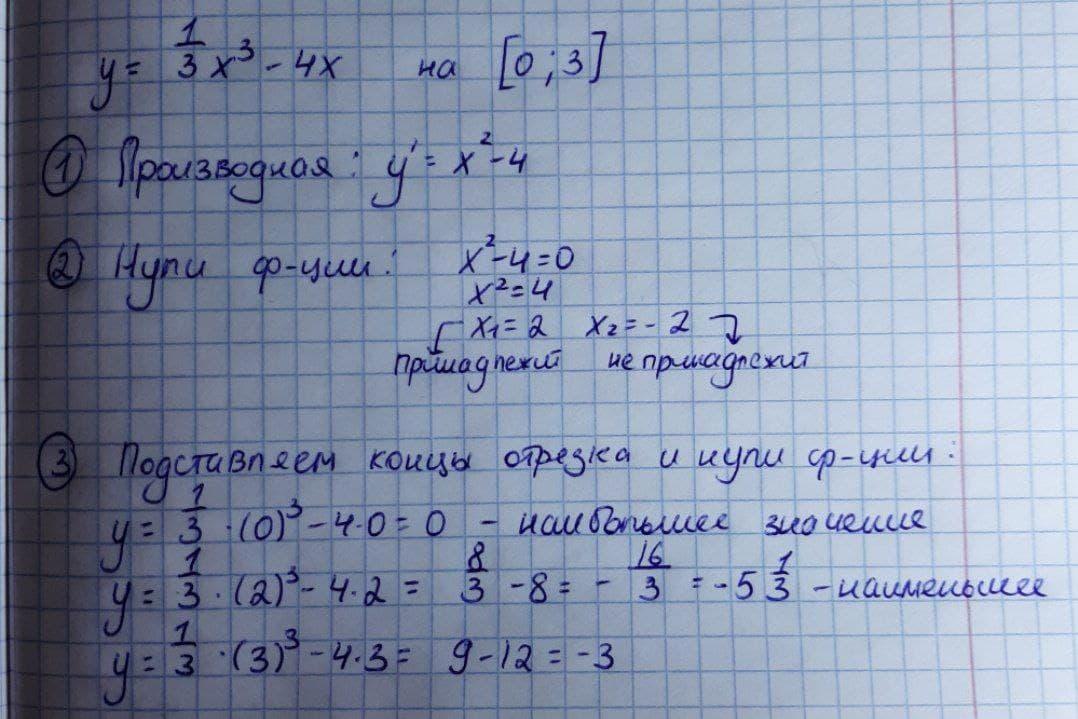 y = 1/3 x³ - 4x на [0 ; 3]
① Производная : y' = x² - 4
② Нули ф-ции : x² - 4 = 0
x² = 4
x₁ = 2 x₂ = - 2
принадлежит не принадлежит
③ Подставляем концы отрезка и нули ф-ции :
y = 1/3 · (0)³ - 4 · 0 = 0 - наибольшее значение
y = 1/3 · (2)³ - 4 · 2 = 8/3 - 8 = - 16/3 = - 5 1/3 - наименьшее
y = 1/3 · (3)³ - 4 · 3 = 9 - 12 = - 3